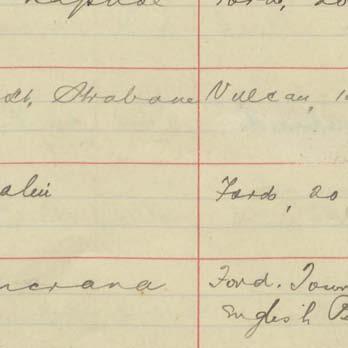 Ford, 20
St, Strabane Vulcan, 1
Ford, 20
ncrana Ford. Tour
English B